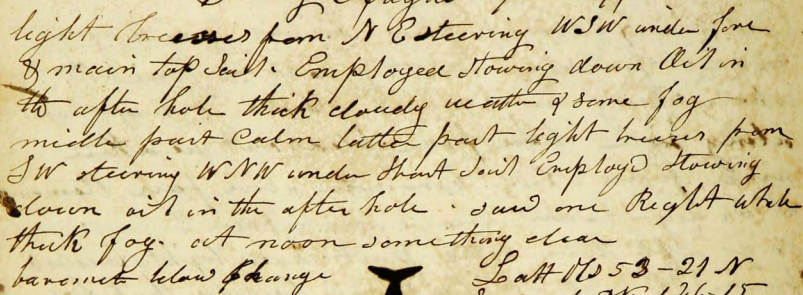 light breeses from N E steering WSW under fore
& main top Sail. Employed Stowing down Oil in
the after hole thick cloudy weather & some fog
middle part Calm latter part light breeses from
SW steering WNW under Short Sail Employd Stowing
down oil in the after hole. saw one Right whale
thick fog. at noon something clear
baromet below Change Latt Obs 53-21 N